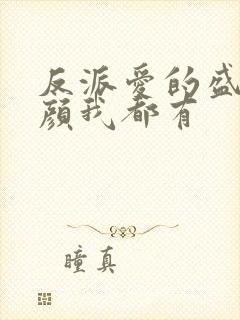 反派爱的盛
颜我都有
瞳真